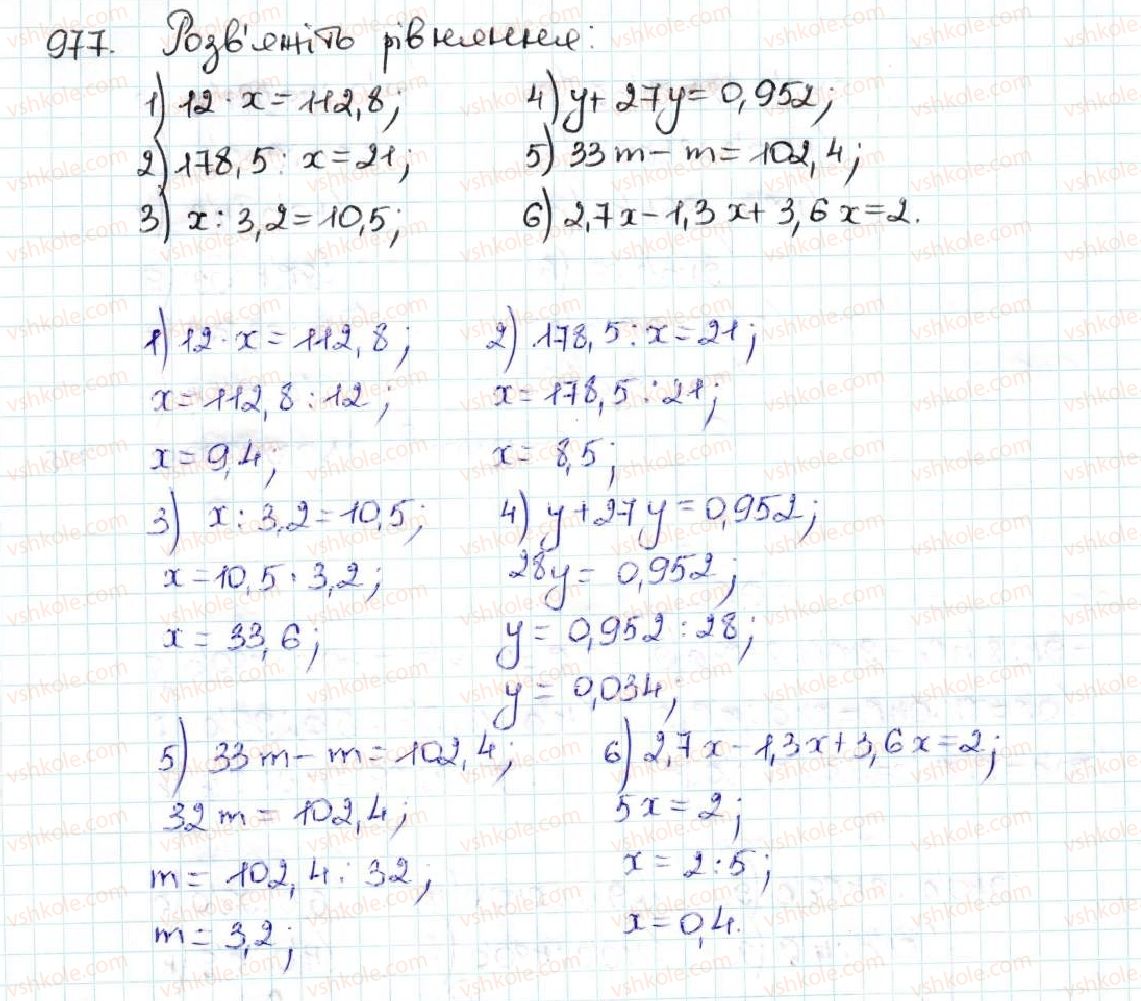 977. Розв'яжіть рівняння:
1) 12 · x = 112,8;
2) 178,5 : x = 21;
3) x : 3,2 = 10,5;
4) y + 27y = 0,952;
5) 33m - m = 102,4;
6) 2,7x - 1,3x + 3,6x = 2.
1) 12 · x = 112,8;
x = 112,8 : 12;
x = 9,4;
2) 178,5 : x = 21;
x = 178,5 : 21;
x = 8,5;
3) x : 3,2 = 10,5;
x = 10,5 · 3,2;
x = 33,6;
4) y + 27y = 0,952;
28y = 0,952;
y = 0,952 : 28;
y = 0,034;
5) 33m - m = 102,4;
32m = 102,4;
m = 102,4 : 32;
m = 3,2;
6) 2,7x - 1,3x + 3,6x = 2;
5x = 2;
x = 2 : 5;
x = 0,4.
vshkole.com